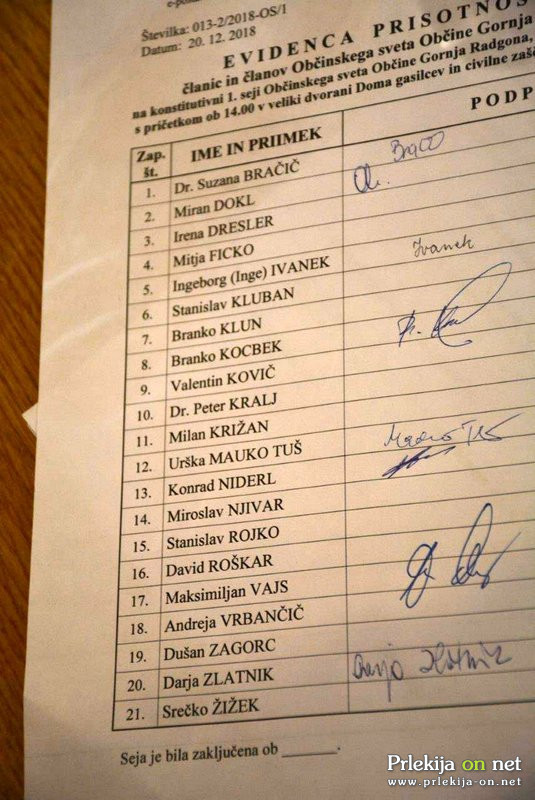 Številka: 013-2/2018-OS/1
Datum: 20. 12. 2018
EVIDENCA PRISOTNOS
članic in članov Občinskega sveta Občine Gornja
na konstitutivni 1. seji Občinskega sveta Občine Gornja Radgona,
s pričetkom ob 14.00 v veliki dvorani Doma gasilcev in civilne zašč
Zap. št. IME IN PRIIMEK PODP
1. Dr. Suzana BRAČIČ
2. Miran DOKL
3. Irena DRESLER
4. Mitja FICKO
5. Ingeborg (Inge) IVANEK Ivanek
6. Stanislav KLUBAN
7. Branko KLUN
8. Branko KOCBEK
9. Valentin KOVIČ
10. Dr. Peter KRALJ
11. Milan KRIŽAN
12. Urška MAUKO TUŠ
13. Konrad NIDERL
14. Miroslav NJIVAR
15. Stanislav ROJKO
16. David ROŠKAR
17. Maksimiljan VAJS
18. Andreja VRBANČIČ
19. Dušan ZAGORC
20. Darja ZLATNIK Darja Zlatnik
21. Srečko ŽIŽEK
Seja je bila zaključena ob _______.
Prlekija on net
www.prlekija-on.net